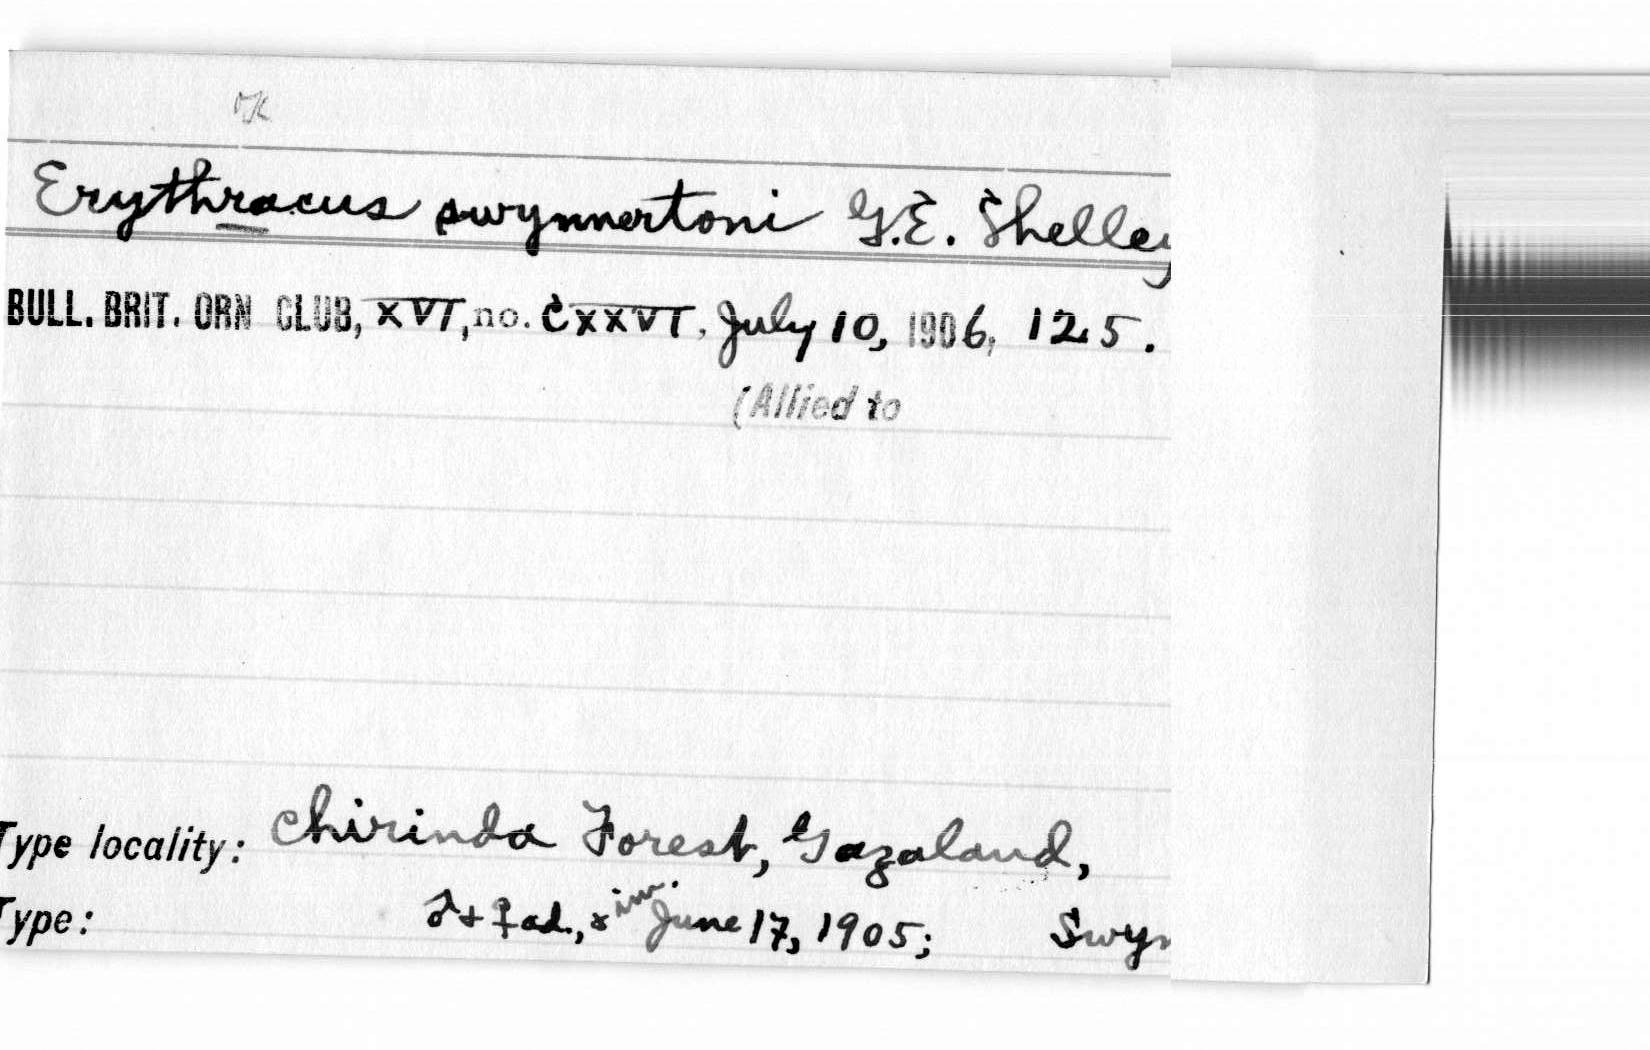 OK
Erythracus swynnertoni G.E. Shelley
BULL. BRIT. ORN CLUB, XVI, no. CXXVI. July 10, 1906, 125.
(Allied to
Type locality: Chirinda Forest, Gazaland,
Type: ♂ + ♀ ad., & im. June 17, 1905; Swyn